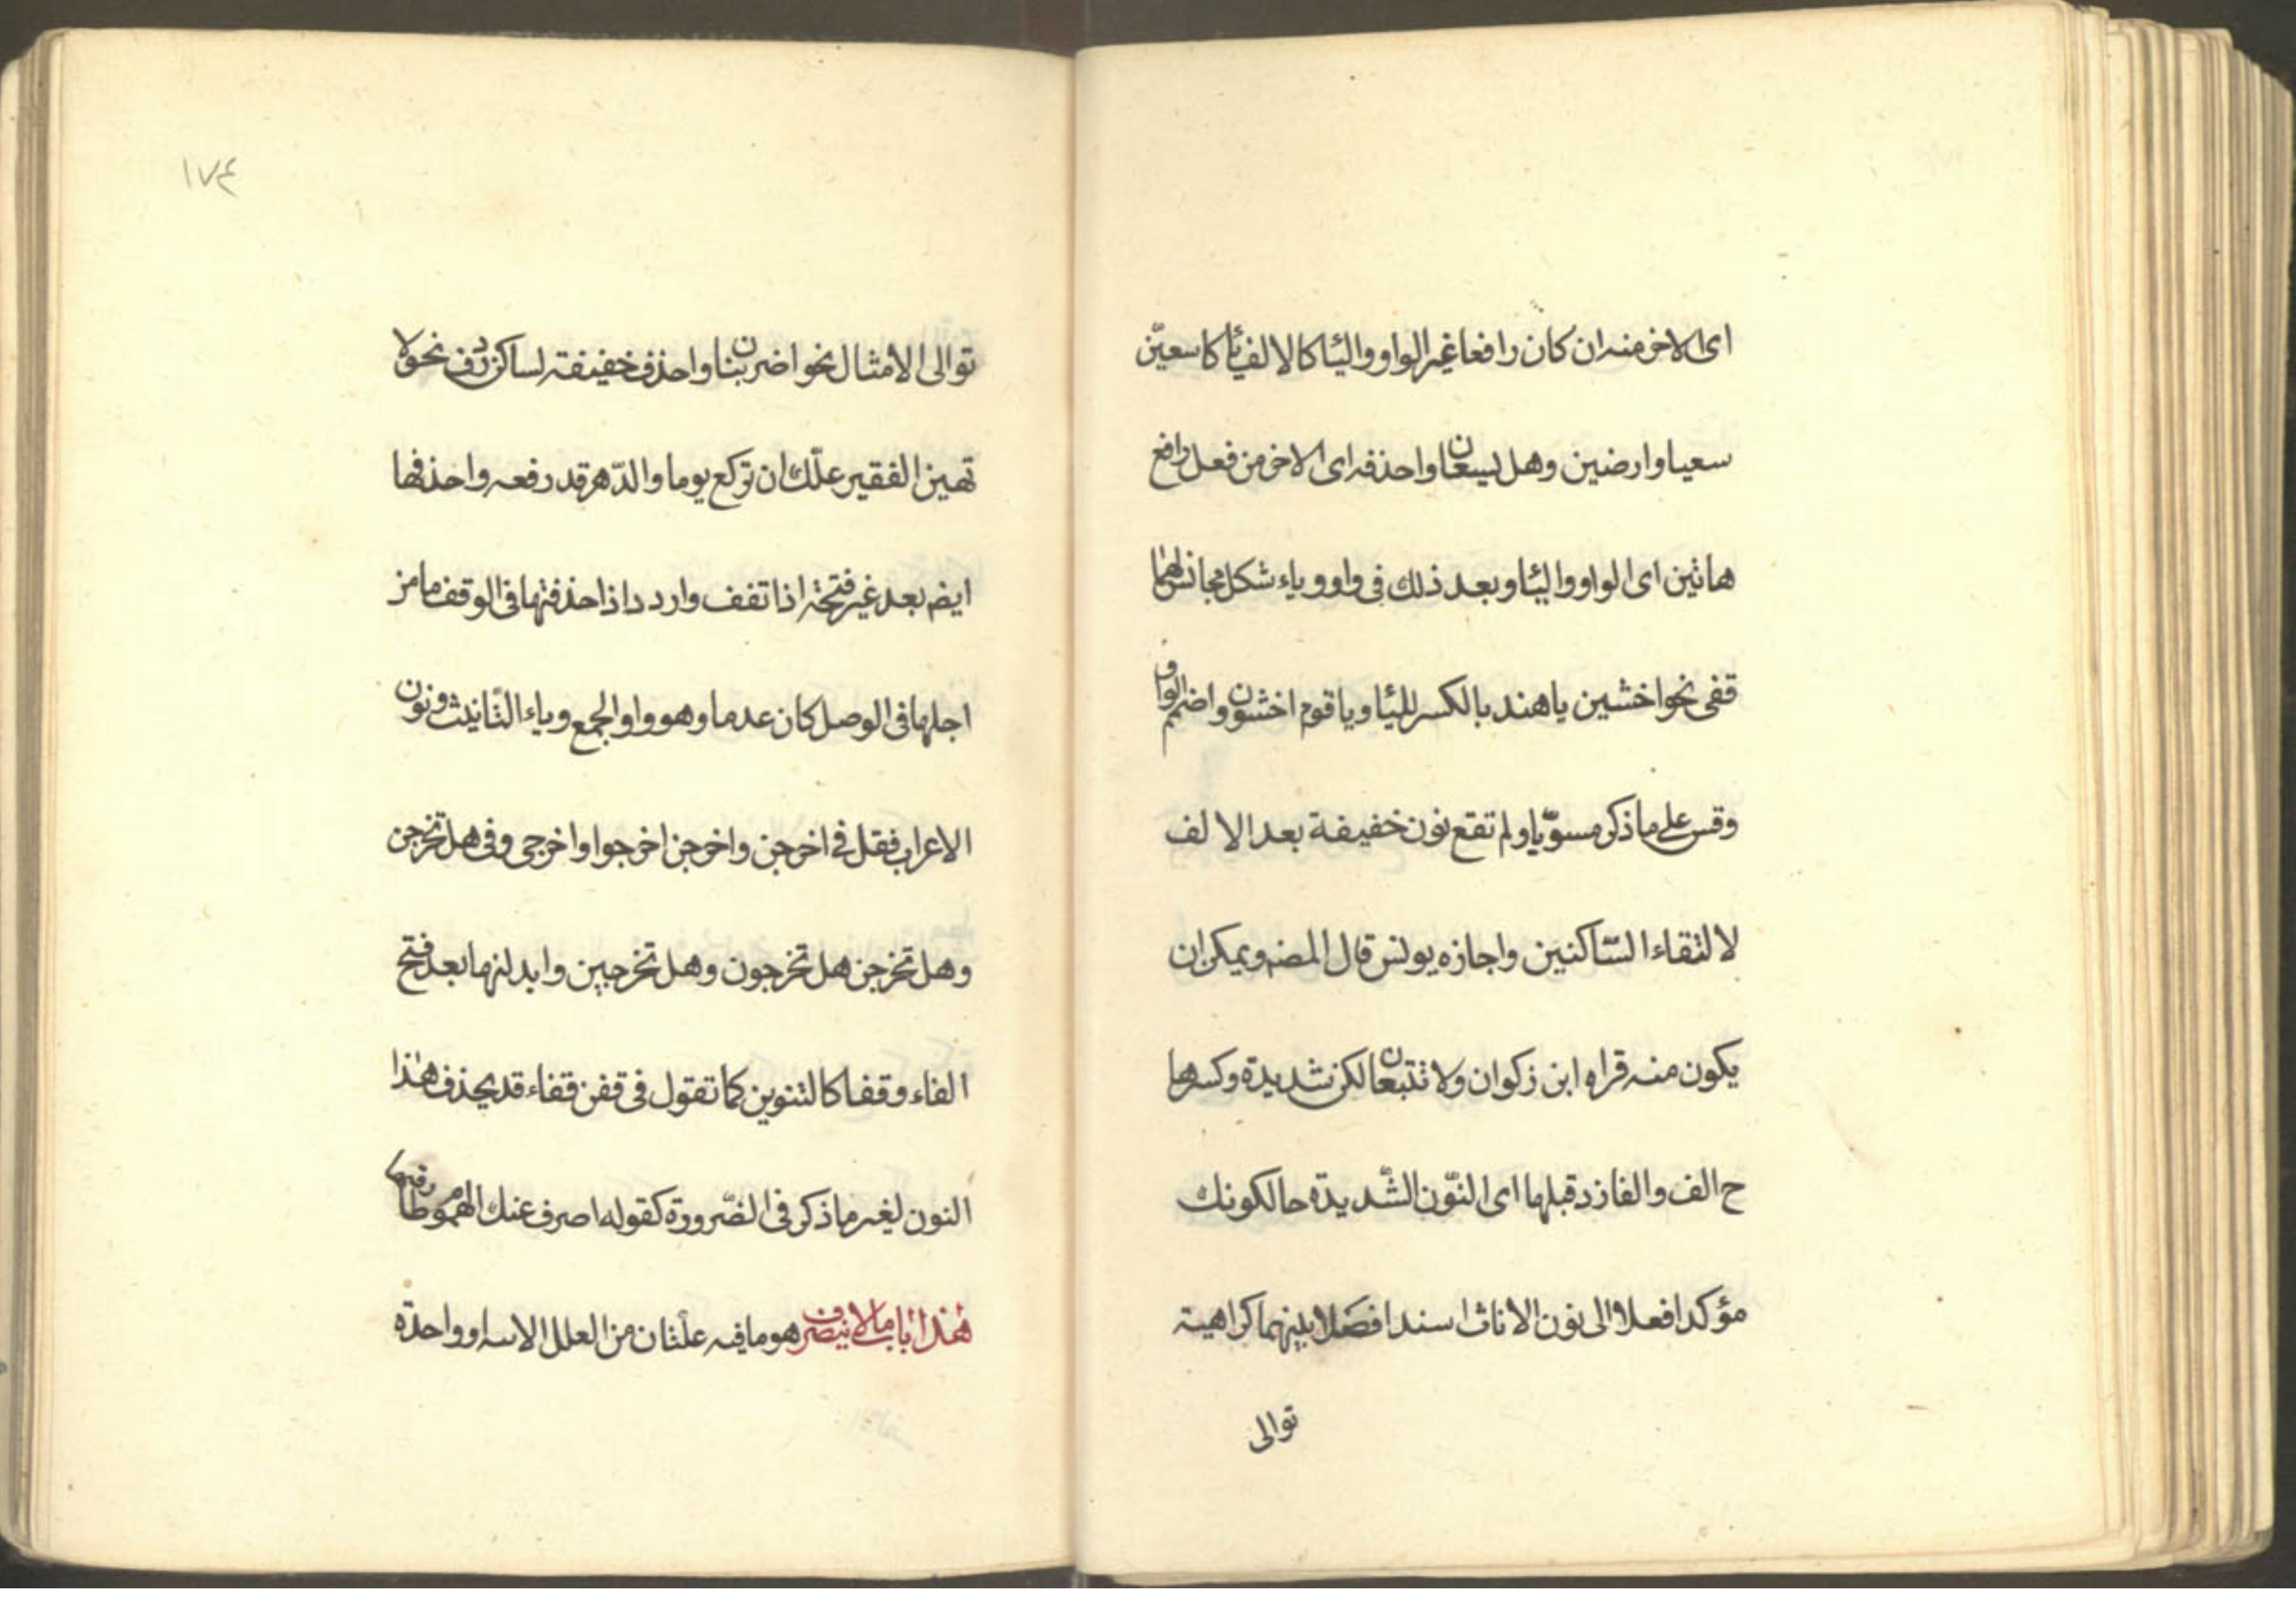 اى الاخر منه ان كان رافعا غير الواو واليا كالالف يا كاسعين
سعيا وارضين وهل يسعان واحذفه اى الاخر من فعل رافع
هاتين اى الواو واليا وبعد ذلك فى واو وياء شكل مجانس لهما
قفى نحو اخشين يا هند بالكسر لليا ويا قوم اخشون واضمم الواو
وقس على ما ذكر مسويا ولم تقع نون خفيفة بعد الالف
لالتقاء السّاكنين واجازه يونس قال المض ويمكن ان
يكون منه قراه ابن زكوان ولا تتبعان لكن شديدة وكسرها
ح الف والفا زد قبلها اى النّون الشّديدة حالكونك
مؤكدا فعلا الى نون الاناث اسندا فصلا بينهما كراهية
توالى
١٧٤
توالى الأمثال نحو اضربنان واحذف خفيفة لساكن ردف نحو لا
تهين الفقير علّك ان تركع يوما والدّهر قد رفعه واحذفها
ايض بعد غير فتحة اذا تقف واردد اذا حذفتها فى الوقف ما من
اجلها فى الوصل كان عدما وهو واو الجمع وياء التّانيث ونون
الاعراب فقل فى اخرجن واخرجن اخرجوا واخرجى وفى هل تخرجن
وهل تخرجن هل تخرجون وهل تخرجين وابدلنها بعد فتح
الفاء وقفا كالتنوين كما تقول فى قفن قفاء قد يحذف هذا
النون لغير ما ذكر فى الضّرورة كقوله اصرف عنك الهموم طارقها
هذا باب ما لا ينصرف هو ما فيه علّتان من العلل الاسه او واحدة